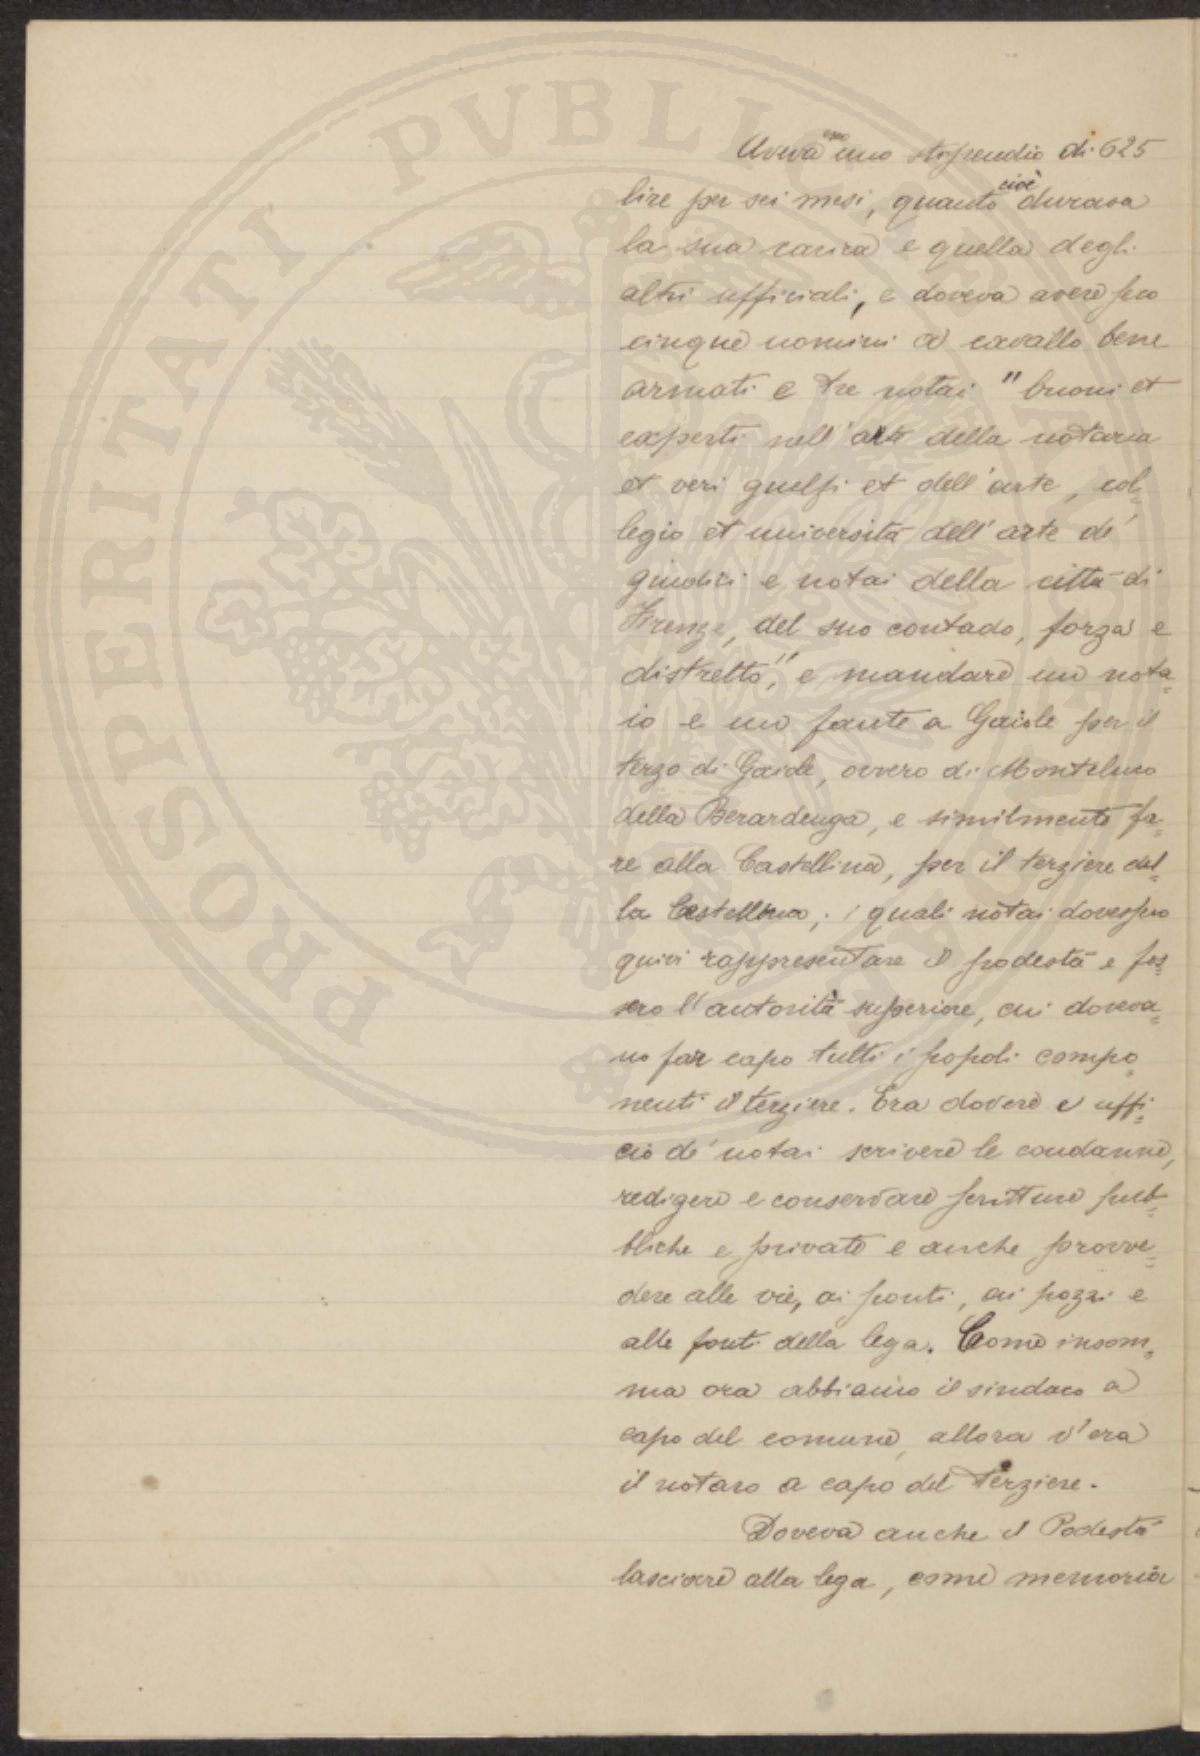 Aveva esso uno stipendio di 625
lire per sei mesi, quanto cioè durava
la sua carica e quella degli
altri ufficiali, e doveva avere seco
cinque uomini a cavallo bene
armati e tre notai "buoni et
experti nell'arte della notaria
et veri guelfi et dell'arte, col=
legio et università dell'arte de'
giudici e notai della città di
Firenze, del suo contado, forza e
distretto", e mandare un nota=
io e un fante a Gaiole per il
terzo di Gaiole, ovvero di Monteluco
della Berardenga, e similmente fa=
re alla Castellina, per il terziere del=
la Castellina; i quali notai dovessero
quivi rappresentare il podestà e fos=
sero l'autorità superiore, cui doveva=
no far capo tutti i popoli compo=
nenti il terziere. Era dovere e uffi=
cio de' notai scrivere le condanne,
redigere e conservare scritture pub=
bliche e private e anche provve=
dere alle vie, ai ponti, ai pozzi e
alle fonti della lega. Come insom=
ma ora abbiamo il sindaco a
capo del comune, allora v'era
il notaro a capo del terziere.
Doveva anche il Podestà
lasciare alla lega, come memoria
PROSPERITATI PVBLICAE